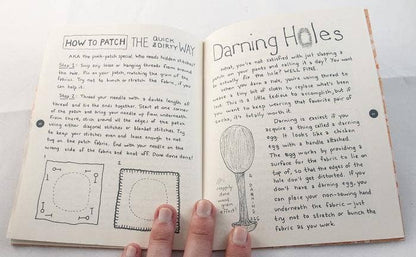 HOW TO PATCH THE QUICK & DIRTY WAY
AKA the punk-patch special. Who needs hidden stitches?
Step 1: Snip any loose or hanging threads from around
the hole. Pin on your patch, matching the grain of the
fabric. Try not to bunch or stretch the fabric, if you
can help it.
Step 2: Thread your needle with a double length of
thread and tie the ends together. Start at one corner
of the patch and bring your needle up from underneath.
From there, stitch around all the edges of the patch
using either diagonal stitches or blanket stitches. Try
to keep your stitches even and loose enough to not
tug on the patch fabric. End with your needle on the
wrong side of the fabric and knot off. Done done done!
1.
2.
Darning Holes
What, you're not satisfied with just slapping a
patch on your pants and calling it a day? You want
to actually fix the hole? WELL FINE.
When you darn a hole, you're using thread to
weave a bit of cloth to replace what's been
lost. This is a little tedious to accomplish, but if
you want to keep wearing that favorite pair of
socks, it's totally worth it.
Darning is easiest if you
acquire a thing called a darning
egg. It looks like a chicken
egg with a handle attached.
The egg works by providing a
surface for the fabric to lie on
top of, so that the edges of the
hole don't get distorted. If you
don't have a darning egg, you
can place your non-sewing hand
underneath the fabric — just
try not to stretch or bunch the
fabric as you work.